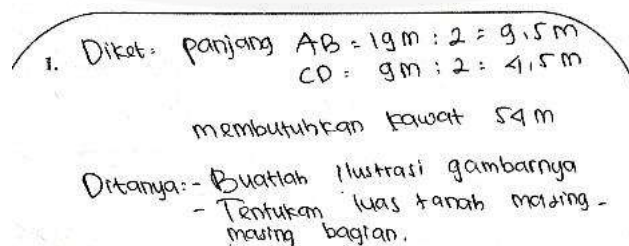 1. Diket: panjang AB = 19 m : 2 = 9,5 m
CD = 9 m : 2 : 4,5 m
membutuhkan kawat 54 m
Ditanya: - Buatlah Ilustrasi gambarnya
- Tentukan luas tanah masing-
masing bagian.